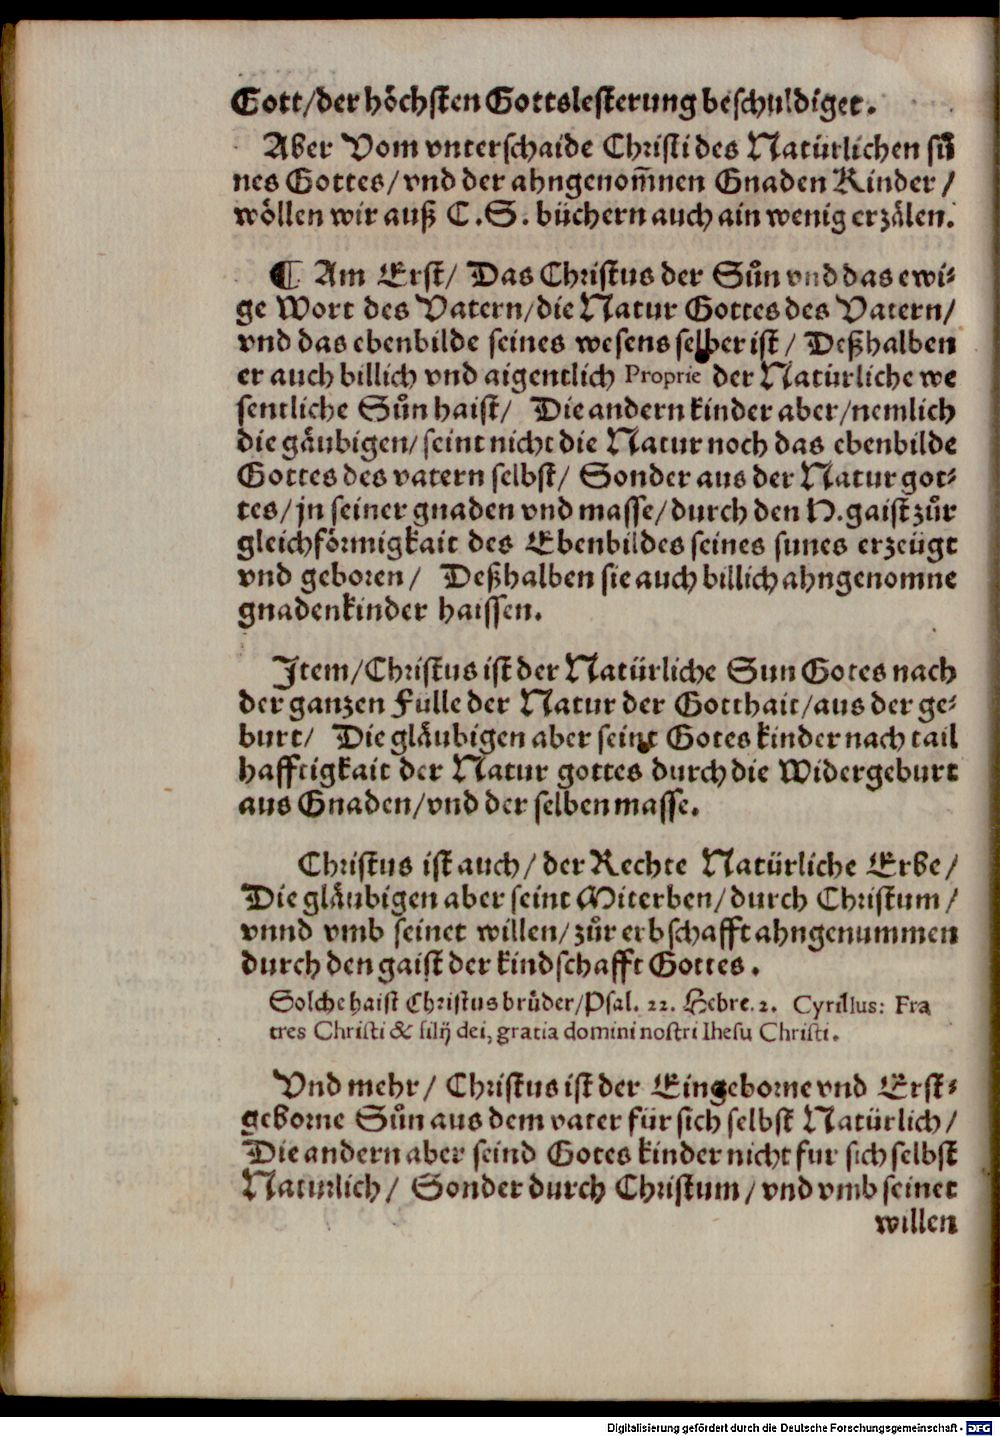 Gott/der höchsten Gottslesterung beschuldiget.
Aber Vom vnterschaide Christi des Natürlichen sů
nes Gottes/vnd der ahngenom̃nen Gnaden Kinder/
wöllen wir auß C.S. büchern auch ain wenig erzälen.
¶ Am Erst/ Das Christus der Sůn vnd das ewi⸗
ge Wort des Vatern/die Natur Gottes des Vatern/
vnd das ebenbilde seines wesens selber ist/ Deßhalben
er auch billich vnd aigentlich Proprie der Natürliche we
sentliche Sůn haist/ Die andern kinder aber/nemlich
die gäubigen/seint nicht die Natur noch das ebenbilde
Gottes des vatern selbst/ Sonder aus der Natur got⸗
tes/jn seiner gnaden vnd masse/durch den H.gaist zůr
gleichförmigkait des Ebenbildes seines sunes erzeügt
vnd geboren/ Deßhalben sie auch billich ahngenomne
gnadenkinder haissen.
Item/Christus ist der Natürliche Sun Gotes nach
der ganzen Fülle der Natur der Gotthait/aus der ge⸗
burt/ Die gläubigen aber seint Gotes kinder nach tail
hafftigkait der Natur gottes durch die Widergeburt
aus Gnaden/vnd der selben masse.
Christus ist auch/der Rechte Natürliche Erbe/
Die gläubigen aber seint Miterben/durch Christum/
vnnd vmb seinet willen/zůr erbschafft ahngenummen
durch den gaist der kindschafft Gottes.
Solche haist Christus brůder/Psal. 22. Hebre. 2. Cyrillus: Fra
tres Christi & filij dei, gratia domini nostri Ihesu Christi.
Vnd mehr/ Christus ist der Eingeborne vnd Erst⸗
geborne Sůn aus dem vater für sich selbst Natürlich/
Die andern aber seind Gotes kinder nicht fur sich selbst
Naturlich/ Sonder durch Christum/vnd vmb seinet
willen
Digitalisierung gefördert durch die Deutsche Forschungsgemeinschaft - DFG